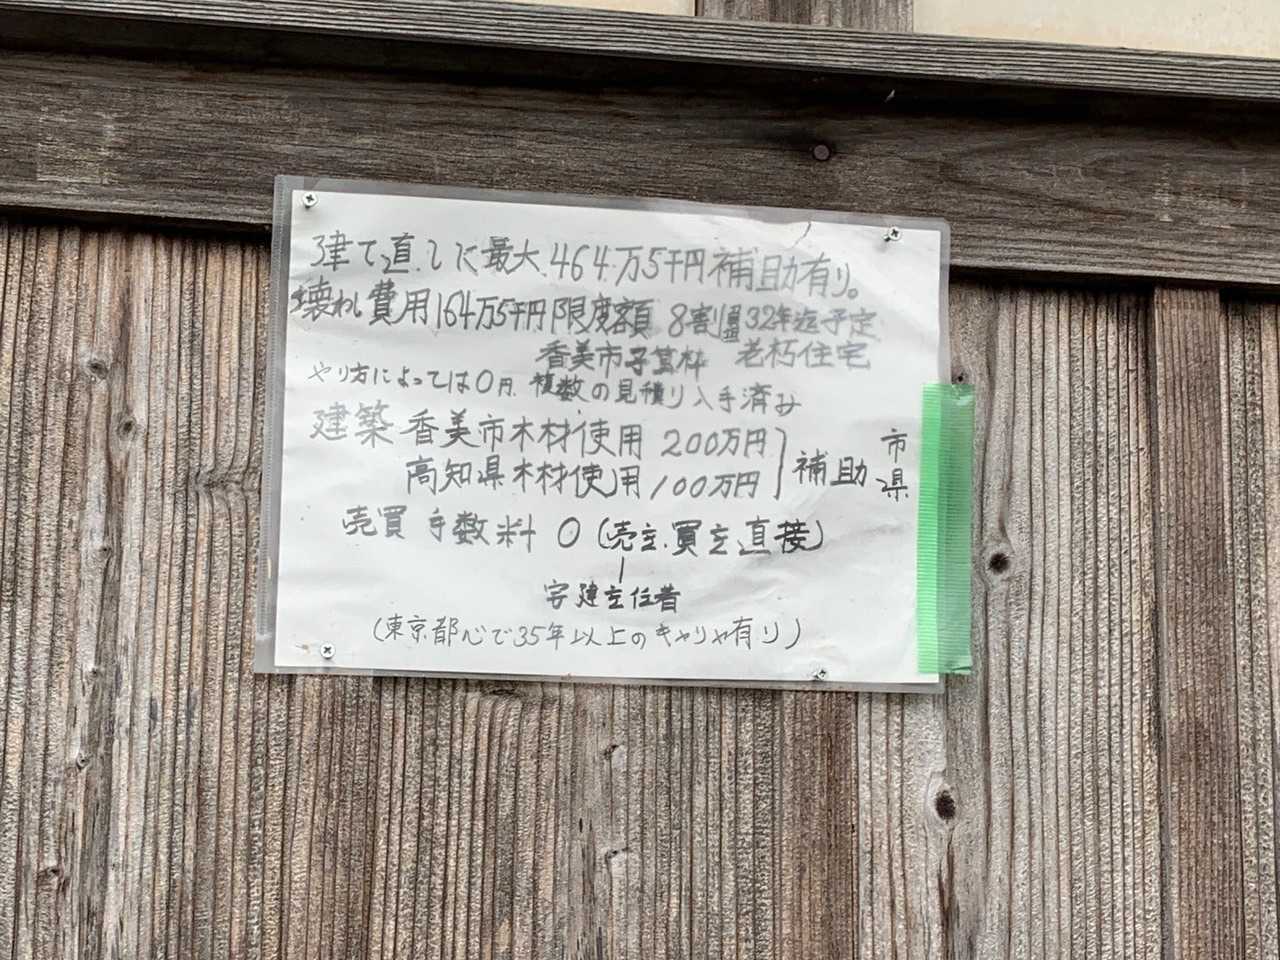 建て直しに最大464万5千円補助有り。
壊わし費用164万5千円限度額 8割 32年迄予定
香美市予算枠 老朽住宅
やり方によっては0円 複数の見積り入手済み
建築 香美市木材使用 200万円
高知県木材使用 100万円
補助 市
県
売買手数料 0 (売主.買主直接)
宅建主任者
(東京都心で35年以上のキャリヤ有り)